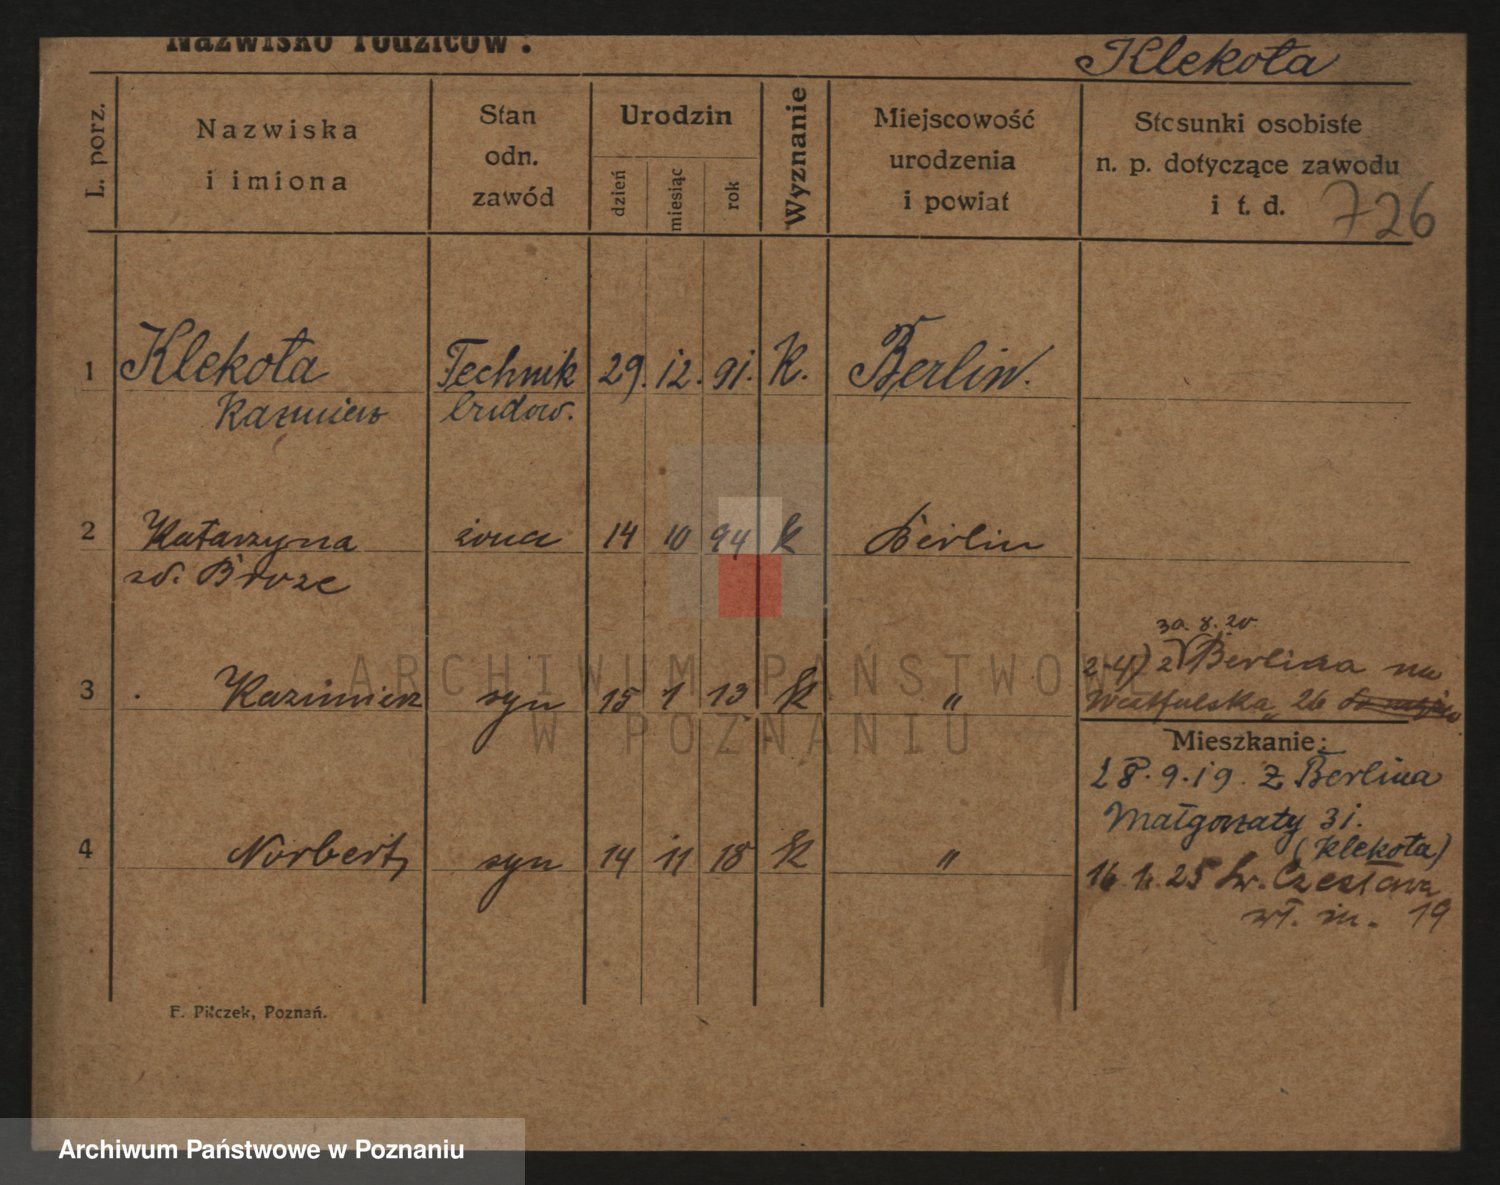 Nazwisko rodziców: Klekota
L. porz.
Nazwiska
i imiona
Stan
odn.
zawód
Urodzin
dzień
miesiąc
rok
Wyznanie
Miejscowość
urodzenia
i powiat
Stosunki osobiste
n. p. dotyczące zawodu
i t. d. 726
1 Klekota Technik 29. 12. 91. K. Berlin.
Kazmierz budow.
2 Katarzyna żona 14 10 94 k Berlin
zd. Broze
30. 8. 20
2-4) z Berlina na
3 Kazimierz syn 15 1 13 k "
Westfalska 26
Mieszkanie:
28. 9. 19. Z Berlina
Małgorzaty 31.
4 Norbert syn 14 11 18 k "
(Klekota)
16. 1. 25 Św. Czesława
wł. m. 19
F. Pilczek, Poznań.
ARCHIWUM PAŃSTWOWE
W POZNANIU
Archiwum Państwowe w Poznaniu